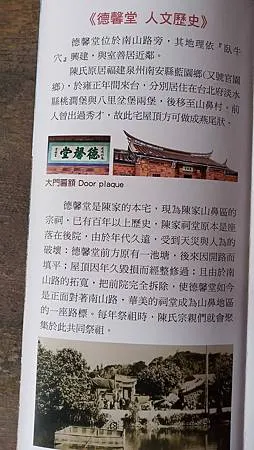 《德馨堂 人文歷史》
德馨堂位於南山路旁，其地理依『臥牛
穴』興建，與室善居近鄰。
陳氏原居福建泉州南安縣藍園鄉(又號官園
鄉)，於雍正年間來台，分別居住在台北府淡水
縣桃澗堡與八里坌堡兩堡，後移至山鼻村。前
人曾出過秀才，故此宅屋頂方可做成燕尾狀。
德馨堂
大門匾額 Door plaque
德馨堂是陳家的本宅，現為陳家山鼻區的
宗祠，已有百年以上歷史，陳家祠堂原本是座
落在後院，由於年代久遠，受到天災與人為的
破壞；德馨堂前方原有一池塘，後來因開路而
填平；屋頂因年久毀損而經整修過；且由於南
山路的拓寬，把前院完全拆除，使德馨堂如今
是正面對著南山路，華美的祠堂成為山鼻地區
的一座路標。每年祭祖時，陳氏宗親們就會聚
集於此共同祭祖。